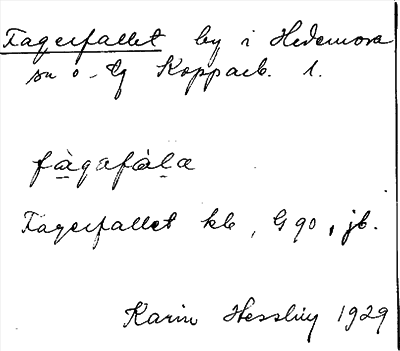 Fagerfallet by i Hedemora
sn o. lg Kopparb. l.
fàgafàla
Fagerfallet kb, G 90, jb.
Karin Hessling 1929